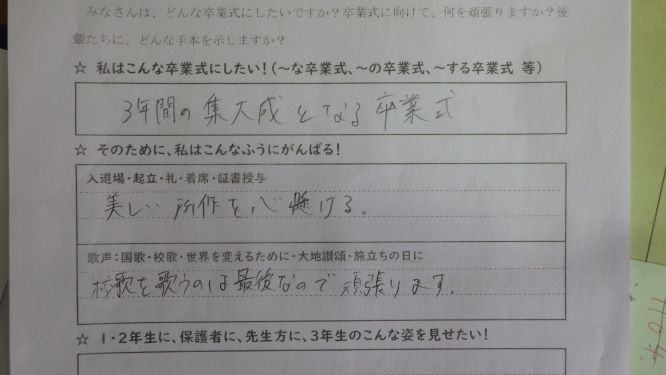 みなさんは、どんな卒業式にしたいですか？卒業式に向けて、何を頑張りますか？後
輩たちに、どんな手本を示しますか？
☆ 私はこんな卒業式にしたい！（～な卒業式、～の卒業式、～する卒業式 等）
3年間の集大成となる卒業式
☆ そのために、私はこんなふうにがんばる！
入退場・起立・礼・着席・証書授与
美しい所作を心懸ける。
歌声：国歌・校歌・世界を変えるために・大地讃頌・旅立ちの日に
校歌を歌うのは最後なので頑張ります。
☆ 1・2年生に、保護者に、先生方に、3年生のこんな姿を見せたい！